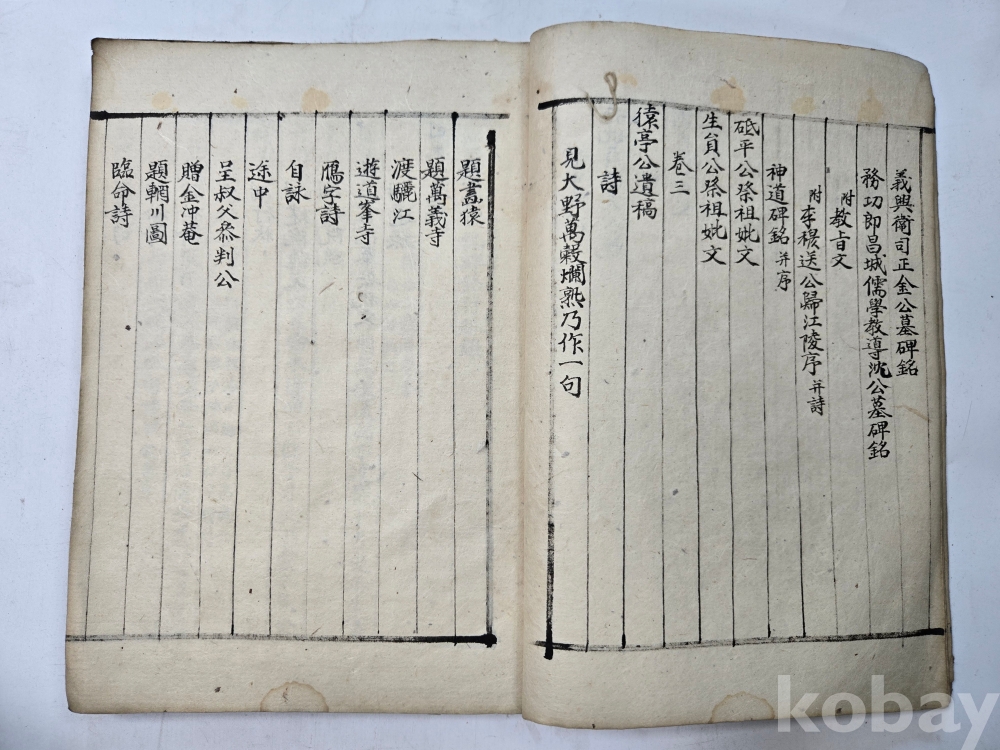 義興衛司正金公墓碑銘
務功郎昌城儒學教導沈公墓碑銘
附教旨文
附李穆送公歸江陵序 并詩
神道碑銘 并序
砥平公祭祖妣文
生員公祭祖妣文
卷三
猿亭公遺稿
詩
見大野萬穀爛熟乃作一句
題畵猿
題萬義寺
渡驪江
遊道峯寺
鴈字詩
自詠
途中
呈叔父叅判公
贈金冲菴
題輞川圖
臨命詩
kobay